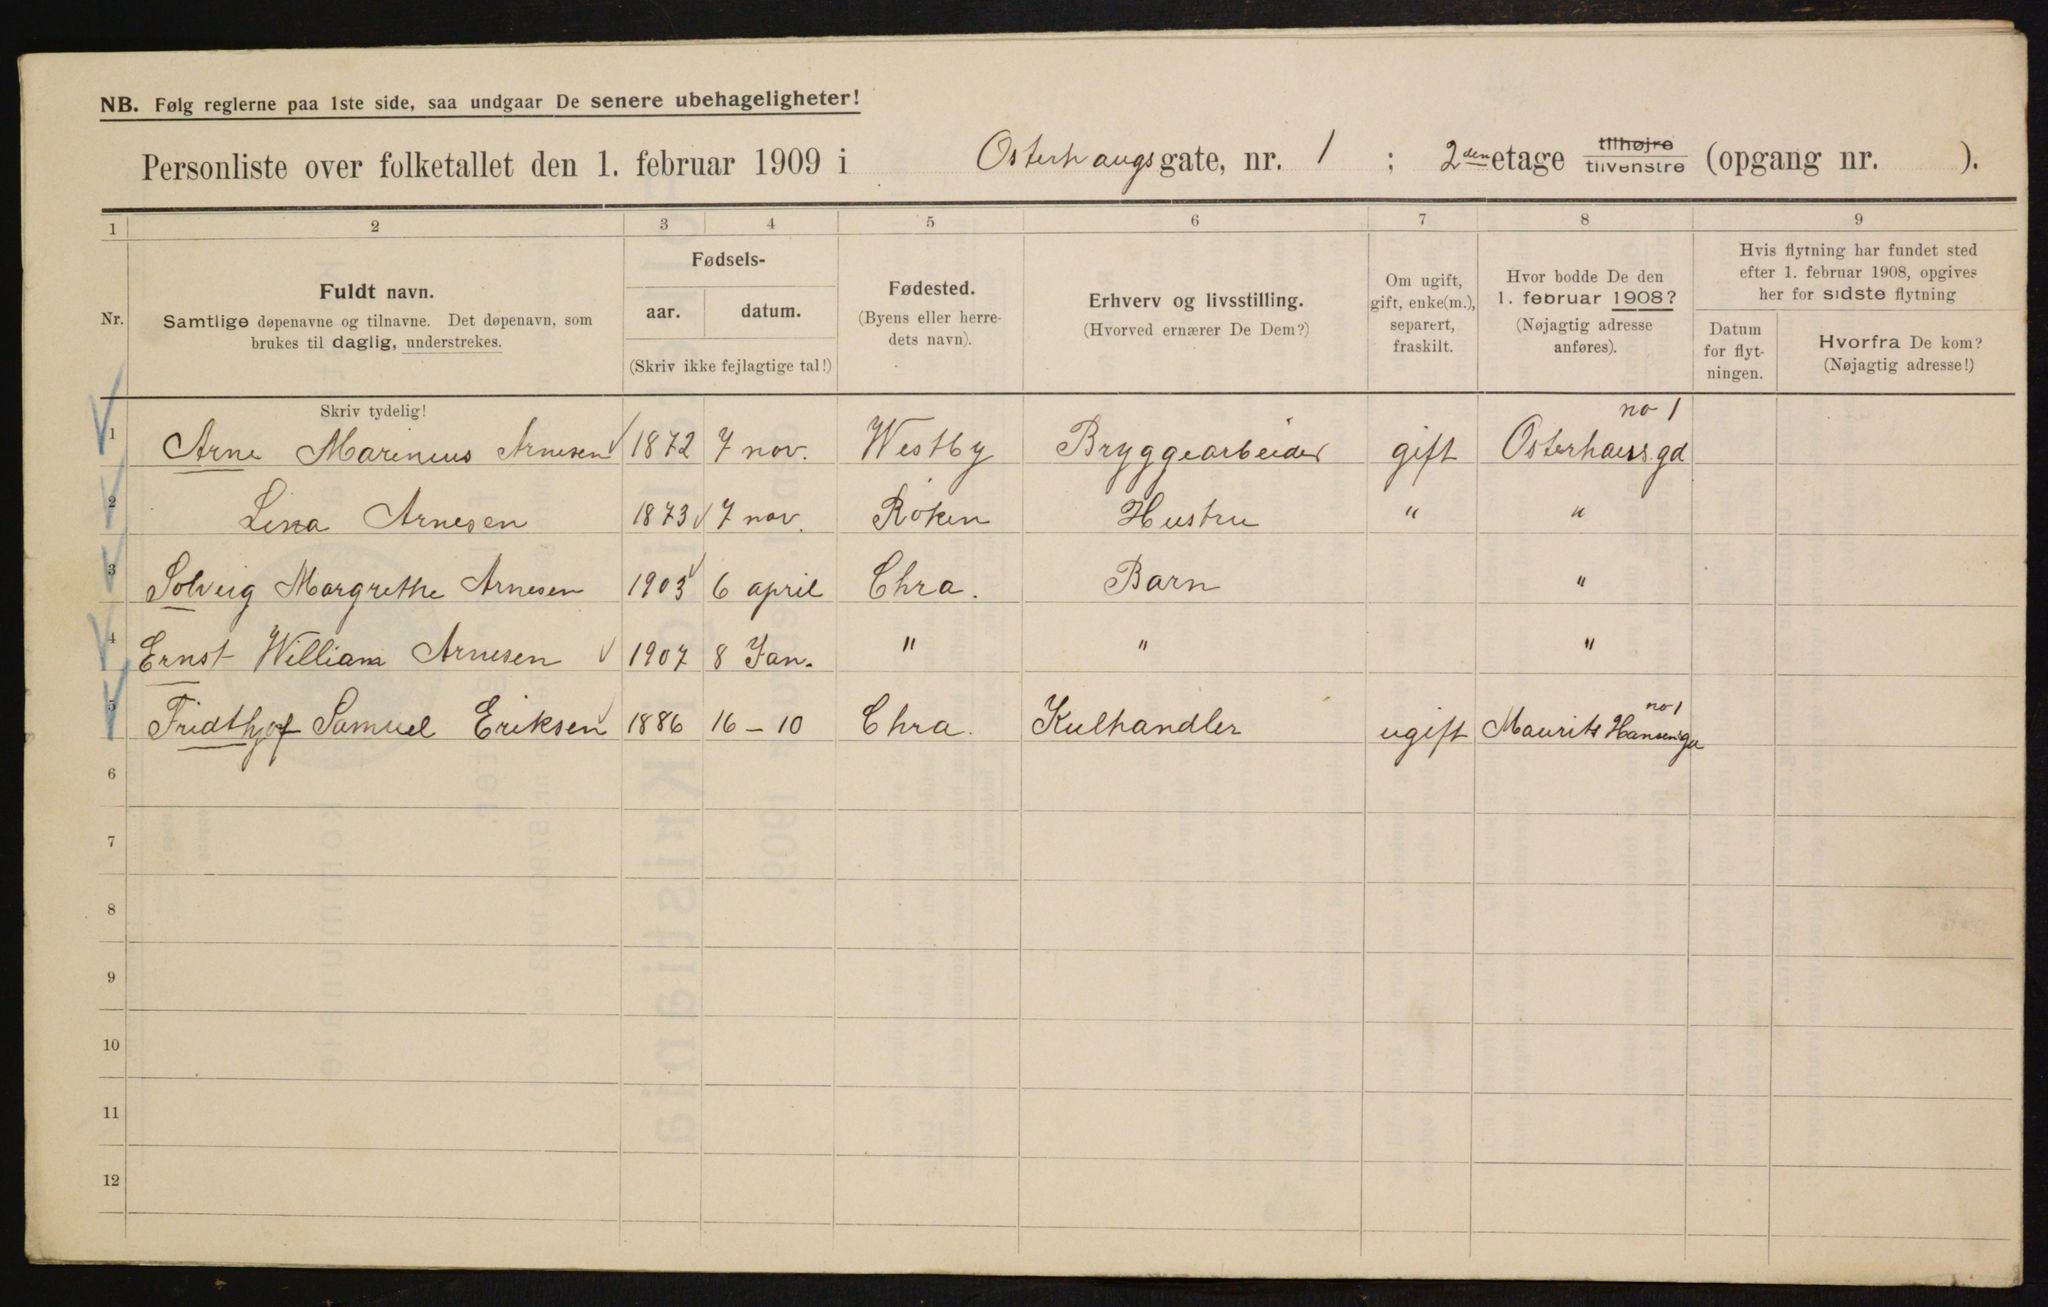 NB. Følg reglerne paa 1ste side, saa undgaar De senere ubehageligheter!
Personliste over folketallet den 1. februar 1909 i Osterhaugsgate, nr. 1 ; 2den etage tilhøjre tilvenstre (opgang nr. ).
1 2 3 4 5 6 7 8 9
Nr.
Fuldt navn.
Samtlige døpenavne og tilnavne. Det døpenavn, som
brukes til daglig, understrekes.
Fødsels-
aar. datum.
(Skriv ikke fejlagtige tal!)
Fødested.
(Byens eller herre-
dets navn).
Erhverv og livsstilling.
(Hvorved ernærer De Dem?)
Om ugift,
gift, enke(m.),
separert,
fraskilt.
Hvor bodde De den
1. februar 1908?
(Nøjagtig adresse
anføres).
Hvis flytning har fundet sted
efter 1. februar 1908, opgives
her for sidste flytning
Datum
for flyt-
ningen.
Hvorfra De kom?
(Nøjagtig adresse!)
Skriv tydelig!
no 1
1 Arne Marinius Arnesen 1872 7 nov. Westby Bryggearbeider gift Osterhausgd
2 Lina Arnesen 1873 7 nov. Röken Hustru " "
3 Solveig Margrethe Arnesen 1903 6 april Chra. Barn "
4 Ernst William Arnesen 1907 8 Jan. " " "
no 1
5 Fridthjof Samuel Eriksen 1886 16-10 Chra. Kulhandler ugift Maurits Hansensga
6
7
8
9
10
11
12